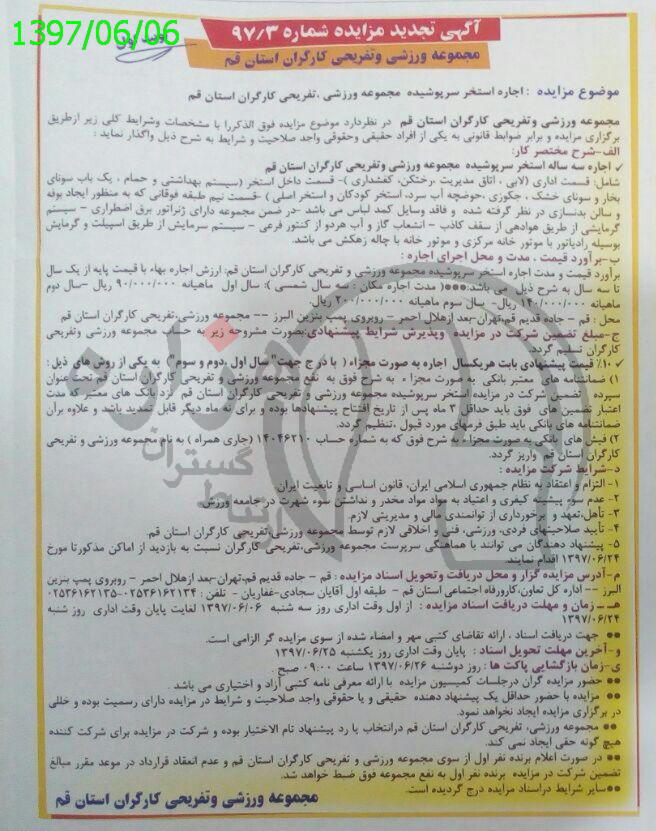 1397/06/06
نوبت اول
آگهی تجدید مزایده شماره ۹۷/۳
مجموعه ورزشی وتفریحی کارگران استان قم
موضوع مزایده : اجاره استخر سرپوشیده مجموعه ورزشی ،تفریحی کارگران استان قم
مجموعه ورزشی وتفریحی کارگران استان قم در نظردارد موضوع مزایده فوق الذکررا با مشخصات وشرایط کلی زیر ازطریق
برگزاری مزایده و برابر ضوابط قانونی به یکی از افراد حقیقی وحقوقی واجد صلاحیت و شرایط به شرح ذیل واگذار نماید :
الف-شرح مختصر کار:
✓ اجاره سه ساله استخر سرپوشیده مجموعه ورزشی و تفریحی کارگران استان قم
شامل: قسمت اداری (لابی ، اتاق مدیریت ،رختکن، کفشداری )- قسمت داخل استخر (سیستم بهداشتی و حمام ، یک باب سونای
بخار و سونای خشک ، جکوزی ،حوضچه آب سرد، استخر کودکان و استخر اصلی ) -قسمت نیم طبقه فوقانی که به منظور ایجاد بوفه
و سالن بدنسازی در نظر گرفته شده و فاقد وسایل کمد لباس می باشد -در ضمن مجموعه دارای ژنراتور برق اضطراری - سیستم
گرمایشی از طریق هوادهی از سقف کاذب - انشعاب گاز و آب هردو از کنتور فرعی - سیستم سرمایش از طریق اسپیلت و گرمایش
بوسیله رادیاتور با موتور خانه مرکزی و موتور خانه با چاله زهکش می باشد.
ب-برآورد قیمت ، مدت و محل اجرای اجاره :
برآورد قیمت و مدت اجاره استخر سرپوشیده مجموعه ورزشی و تفریحی کارگران استان قم: ارزش اجاره بهاء با قیمت پایه از یک سال
تا سه سال به شرح ذیل می باشد:●●●( مدت اجاره مکان : سه سال شمسی ): سال اول ماهیانه ۹۰/۰۰۰/۰۰۰ ریال -سال دوم
ماهیانه ۱۴۰/۰۰۰/۰۰۰ ریال- سال سوم ماهیانه ۲۰۰/۰۰۰/۰۰۰ ریال.
محل : قم - جاده قدیم قم،تهران-بعد ازهلال احمر - روبروی پمپ بنزین البرز -- مجموعه ورزشی،تفریحی کارگران استان قم
ج-مبلغ تضمین شرکت در مزایده وپذیرش شرایط پیشنهادی:بصورت مشروحه زیر به حساب مجموعه ورزشی وتفریحی
کارگران تسلیم گردد.
✓ ۱۰٪ قیمت پیشنهادی بابت هریکسال اجاره به صورت مجزاء ( با درج جهت" سال اول ،دوم و سوم") به یکی از روش های ذیل :
۱) ضمانتنامه های معتبر بانکی به صورت مجزاء به شرح فوق به نفع مجموعه ورزشی و تفریحی کارگران استان قم تحت عنوان
سپرده تضمین شرکت در مزایده استخر سرپوشیده مجموعه ورزشی و تفریحی کارگران استان قم نزد بانک های معتبر که مدت
اعتبار تضمین های فوق باید حداقل ۳ ماه پس از تاریخ افتتاح پیشنهادها بوده و برای سه ماه دیگر قابل تمدید باشد و علاوه برآن
ضمانتنامه های بانکی باید طبق فرمهای مورد قبول ،تنظیم گردد.
۲) فیش های بانکی به صورت مجزاء به شرح فوق که به شماره حساب ۱۴۰۴۶۲۱۰ (جاری همراه ) به نام مجموعه ورزشی و تفریحی
کارگران استان قم واریز گردد.
د-شرایط شرکت مزایده :
۱- التزام و اعتقاد به نظام جمهوری اسلامی ایران، قانون اساسی و تابعیت ایران
۲- عدم سوء پیشینه کیفری و اعتیاد به مواد مواد مخدر و نداشتن سوء شهرت در جامعه ورزش
۳- تأهل،تعهد و برخورداری از توانمندی مالی و مدیریتی لازم.
۴- تأیید صلاحیتهای فردی، ورزشی، فنی و اخلاقی لازم توسط مجموعه ورزشی،تفریحی کارگران استان قم.
۵- پیشنهاد دهندگان می توانند با هماهنگی سرپرست مجموعه ورزشی،تفریحی کارگران نسبت به بازدید از اماکن مذکورتا مورخ
۱۳۹۷/۰۶/۲۴ اقدام نمایند.
م-آدرس مزایده گزار و محل دریافت وتحویل اسناد مزایده : قم - جاده قدیم قم،تهران-بعد ازهلال احمر - روبروی پمپ بنزین
البرز -- اداره کل تعاون،کارورفاه اجتماعی استان قم - طبقه اول آقایان سجادی-غفاریان - تلفن : ۰۲۵۳۶۱۶۲۱۳۴-۰۲۵۳۶۱۶۲۱۳۵
هـ - زمان و مهلت دریافت اسناد مزایده : از اول وقت اداری روز سه شنبه ۱۳۹۷/۰۶/۰۶ لغایت پایان وقت اداری روز شنبه
۱۳۹۷/۰۶/۲۴
●● جهت دریافت اسناد ، ارائه تقاضای کتبی مهر و امضاء شده از سوی مزایده گر الزامی است.
و-آخرین مهلت تحویل اسناد : پایان وقت اداری روز یکشنبه ۱۳۹۷/۰۶/۲۵
ی-زمان بازگشایی پاکت ها : روز دوشنبه ۱۳۹۷/۰۶/۲۶ ساعت ۰۹:۰۰ صبح .
●● حضور مزایده گران درجلسات کمیسیون مزایده با ارائه معرفی نامه کتبی آزاد و اختیاری می باشد .
●● مزایده با حضور حداقل یک پیشنهاد دهنده حقیقی و یا حقوقی واجد صلاحیت و شرایط در مزایده دارای رسمیت بوده و خللی
در برگزاری مزایده ایجاد نخواهد نمود.
●● مجموعه ورزشی، تفریحی کارگران استان قم درانتخاب یا رد پیشنهاد تام الاختیار بوده و شرکت در مزایده برای شرکت کننده
هیچ گونه حقی ایجاد نمی کند.
●● در صورت اعلام برنده نفر اول از سوی مجموعه ورزشی و تفریحی کارگران استان قم و عدم انعقاد قرارداد در موعد مقرر مبالغ
تضمین شرکت در مزایده برنده نفر اول به نفع مجموعه فوق ضبط خواهد شد.
●●سایر شرایط دراسناد مزایده درج گردیده است.
مجموعه ورزشی وتفریحی کارگران استان قم